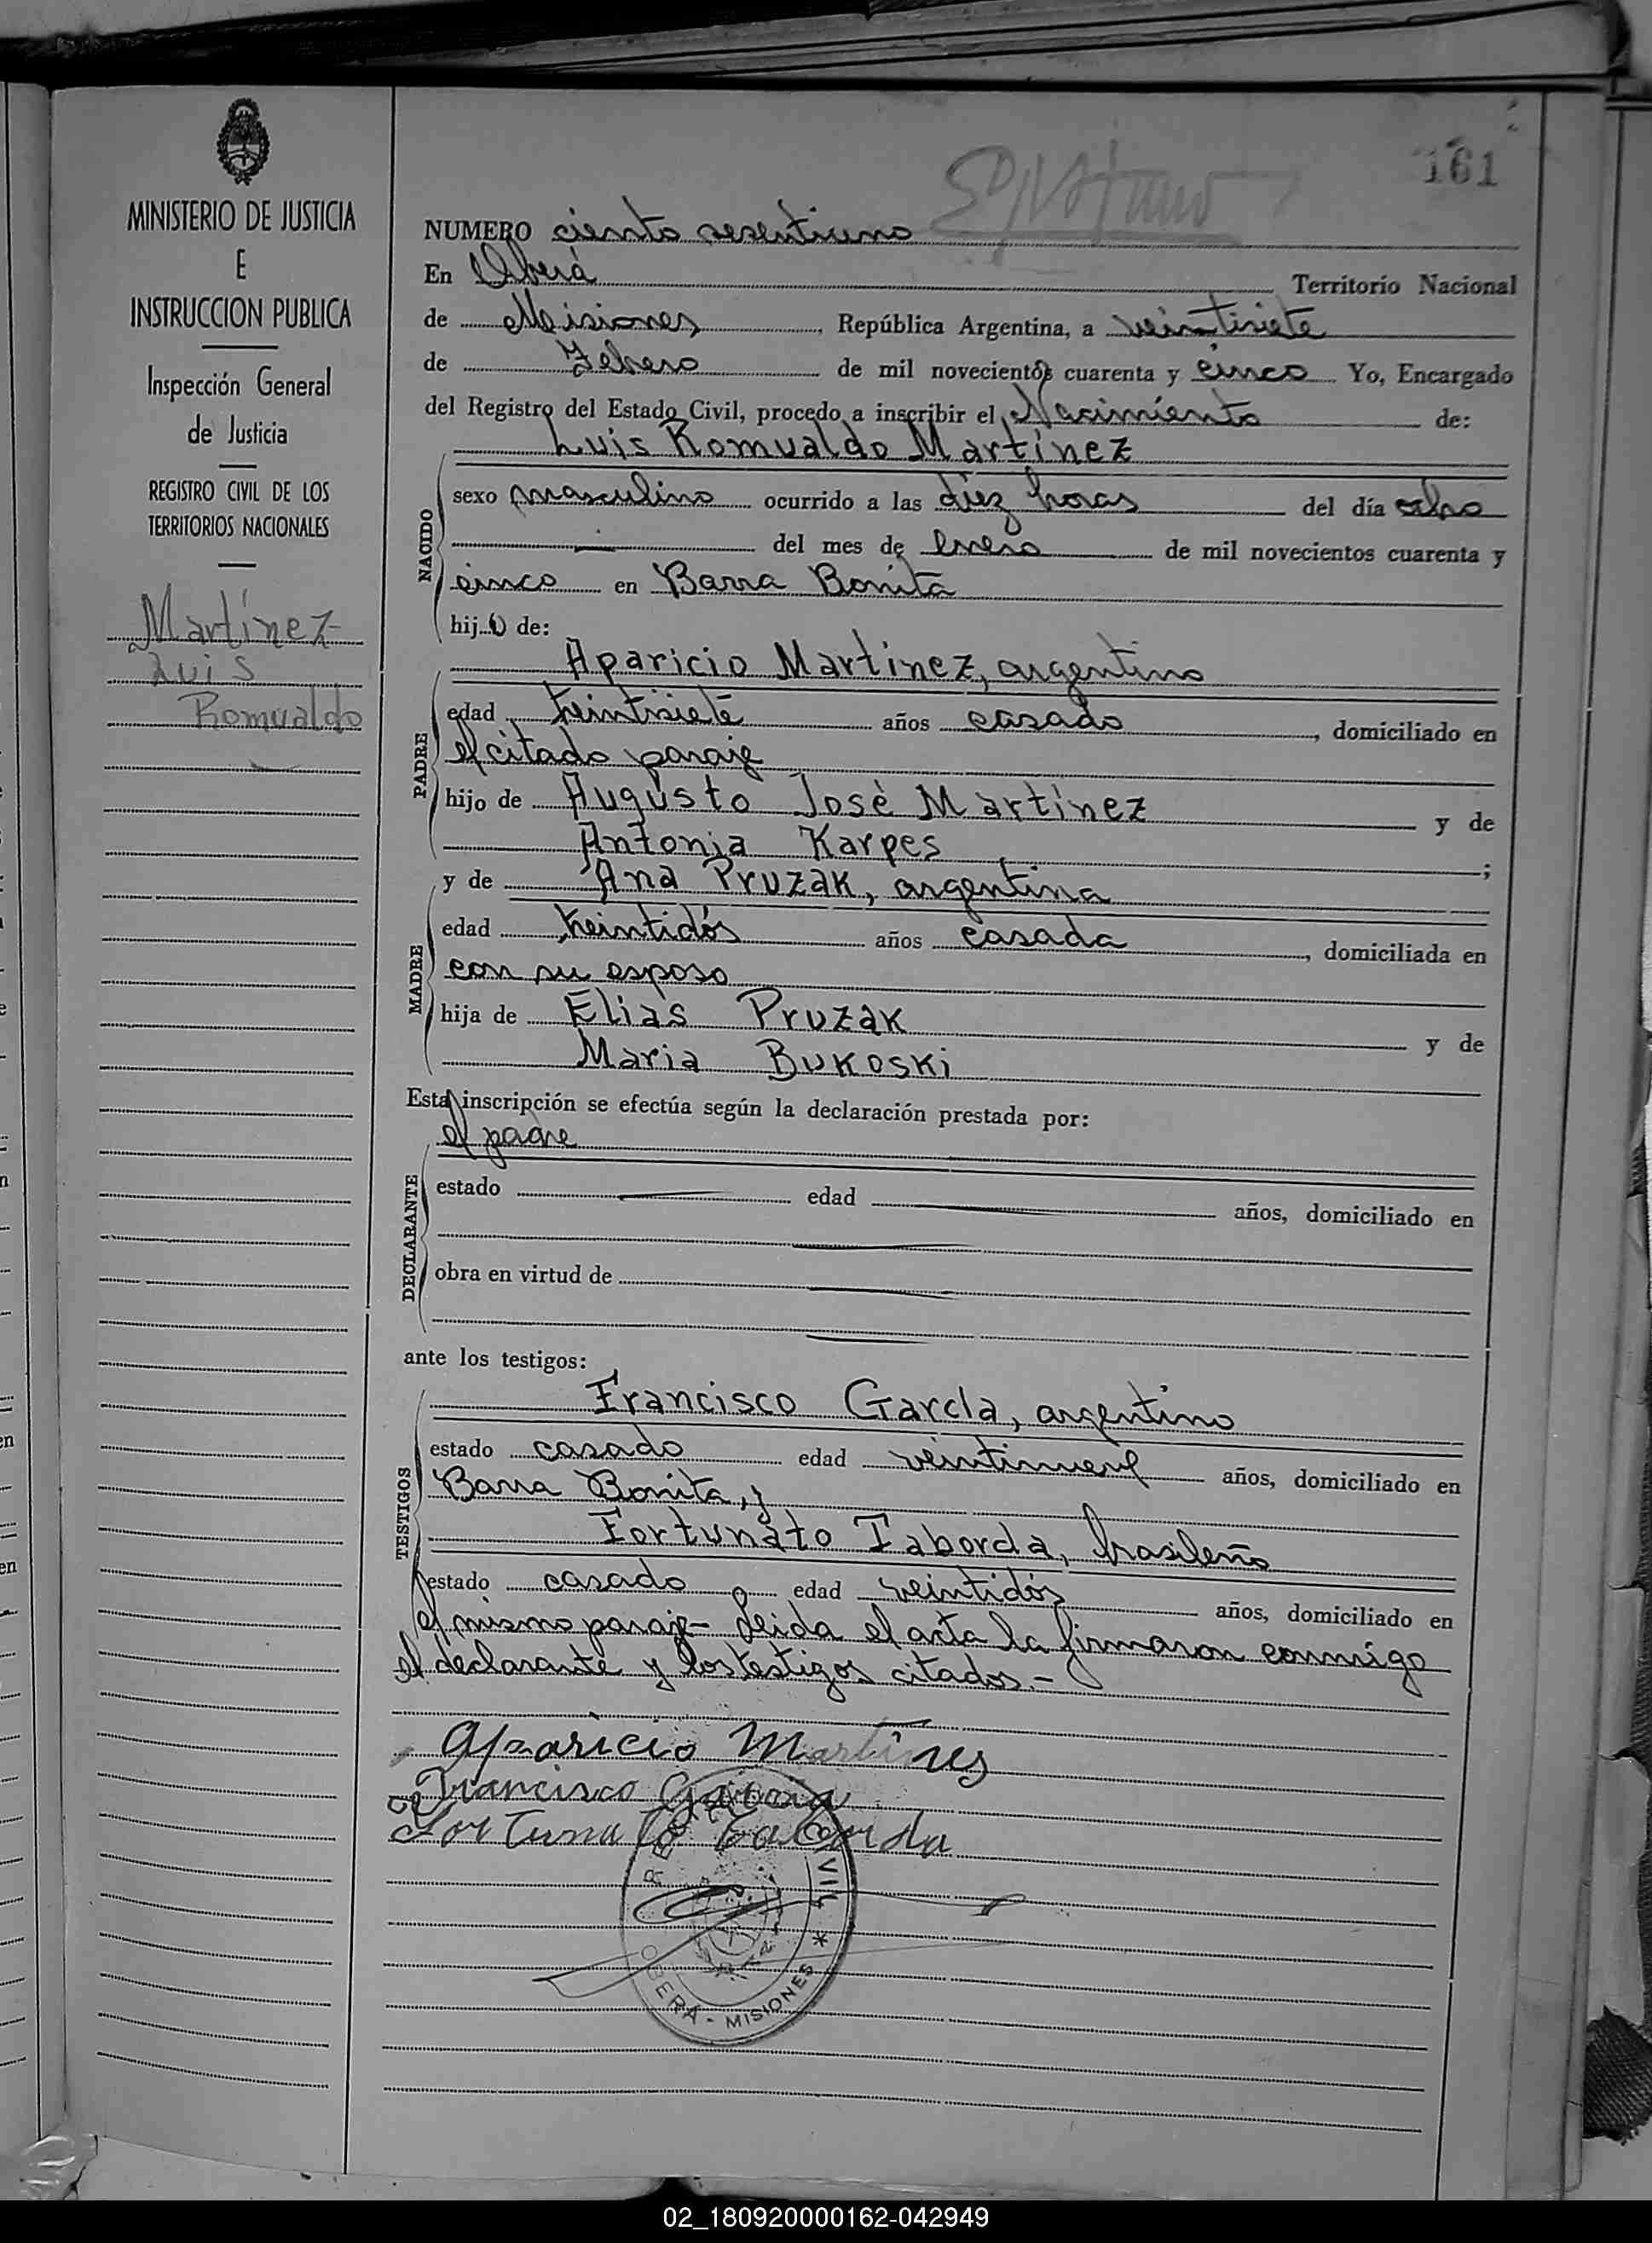 161
MINISTERIO DE JUSTICIA
E
INSTRUCCION PUBLICA
Inspección General
de Justicia
REGISTRO CIVIL DE LOS
TERRITORIOS NACIONALES
Martínez
Luis
Romualdo
NUMERO ciento sesentiuno
En Oberá Territorio Nacional
de Misiones, República Argentina, a veintisiete
de Febrero de mil novecientos cuarenta y cinco Yo, Encargado
del Registro del Estado Civil, procedo a inscribir el Nacimiento de:
Luis Romualdo Martínez
NACIDO
sexo masculino ocurrido a las diez horas del día ocho
del mes de Enero de mil novecientos cuarenta y
cinco en Barra Bonita
hijo de:
Aparicio Martínez, argentino
PADRE
edad treintisiete años casado, domiciliado en
el citado paraje
hijo de Augusto José Martínez y de
Antonia Karpes;
y de Ana Pruzak, argentina
MADRE
edad treintidós años casada, domiciliada en
con su esposo
hija de Elías Pruzak y de
Maria Bukoski
Esta inscripción se efectúa según la declaración prestada por:
el padre
DECLARANTE
estado edad años, domiciliado en
obra en virtud de
ante los testigos:
Francisco García, argentino
TESTIGOS
estado casado edad veintinueve años, domiciliado en
Barra Bonita, y
Fortunato Taborda, brasileño
estado casado edad veintidós años, domiciliado en
el mismo paraje- Leida el acta la firmaron conmigo
el declarante y los testigos citados.-
Aparicio Martines
Francisco Garcia
Fortunato Taborda
OBERÁ - MISIONES *
02_180920000162-042949